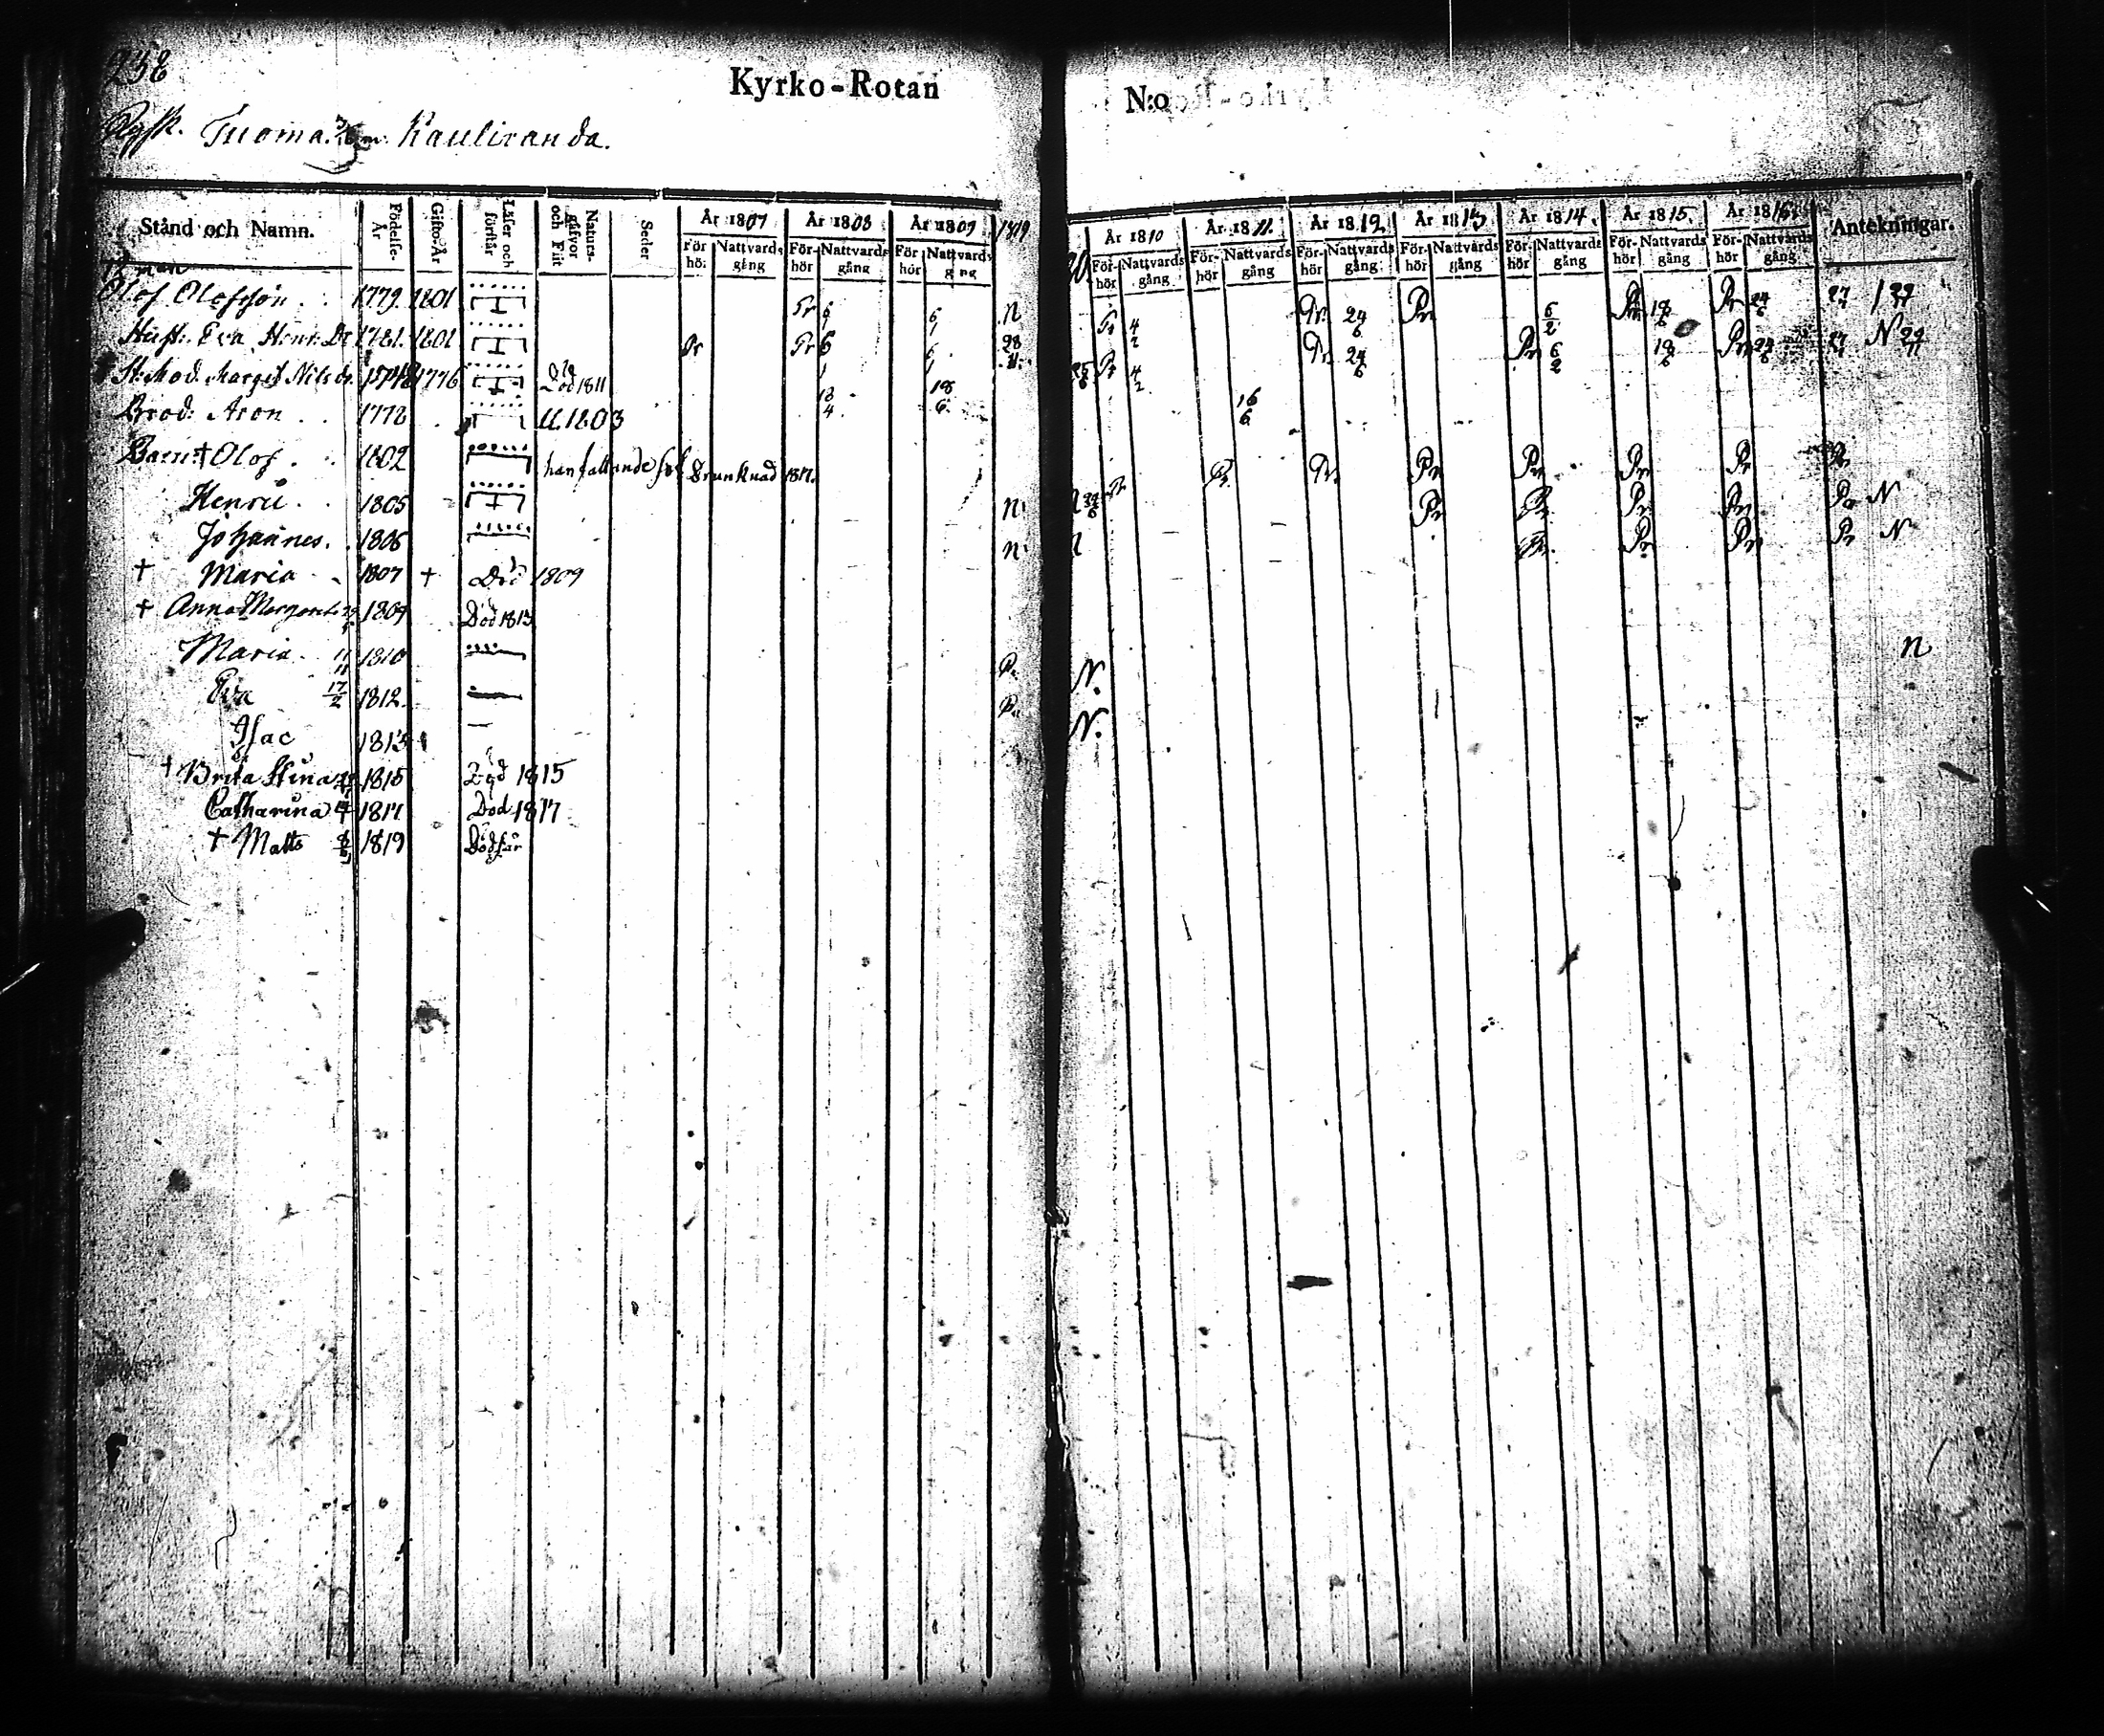 238
Kyrko-Rotan N:o
Tuoma Kauliranda.
Stånd och Namn. Födelse-År Gifto-År Läser och förstår Naturs-gåfvor och Flit Seder År 1807 År 1808 År 1809 1819 År 1810 År 1811. År 1812. År 1813 År 1814. År 1815. År 1816. Antekningar.
För hör Nattvards gång För-hör Nattvards gång För hör Nattvards gång För-hör Nattvards gång För-hör Nattvards gång För-hör Nattvards gång För-hör Nattvards gång För-hör Nattvards gång För-hör Nattvards gång För-hör Nattvards gång
Olof Olofsson 1779. 1801 Pr 6/1 6/1 n Pr 4/2 Pr 24/6 Pr 6/2 Pr 18/6 Pr 24/6
Hust: Eva Henr: Dr 1781. 1801 Pr Pr 6/1 6/1 28 Pr 4/2 Pr 24/6 Pr 6/2 18/6 Pr 24/6 N
Mod. Marget Nils dr. 1776 Död 1811 18/4 18/6 16/6
Brod: Aron 1778 U. 1803
Barn: † Olof 1802 han fallande sot Drunknad 1817. Pr Pr Pr Pr Pr Pr Pr
Henric 1805 n Pr Pr Pr Pr Pr N
Johannes. 1806 n n Pr Pr Pr Pr N
† Maria 1807 † Död 1809
† Anna Margareta 1809 Död 1813
Maria 11/11 1810 P. N. n
Eva 17/2 1812. P. N.
Isac 1813
† Brita Stina 1815 Död 1815
Catharina 1817 Död 1817
† Matts 1819 Död s. år